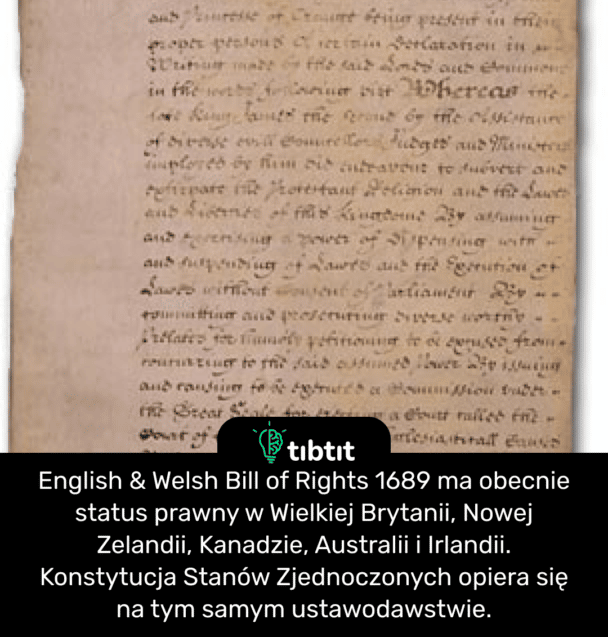 and Princesse of Orange being present in their
proper persons a certain Declaration in
Writeing made by the said Lords and Commons
in the words following viz Whereas the
late King James the Second by the Assistance
of diverse evill Councellors Judges and Ministers
imployed by him did endeavour to subvert and
extirpate the Protestant Religion and the Lawes
and Liberties of this Kingdome By assuming
and exercising a power of Dispensing with
and suspending of Lawes and the Execution of
Lawes without Consent of Parliament By
committing and prosecuting diverse worthy
Prelates for humbly petitioning to be excused from
concurring to the said assumed Power By issuing
and causing to be executed a Commission under
the Great Seale for a Court called the
Court of
tıbtıt
English & Welsh Bill of Rights 1689 ma obecnie
status prawny w Wielkiej Brytanii, Nowej
Zelandii, Kanadzie, Australii i Irlandii.
Konstytucja Stanów Zjednoczonych opiera się
na tym samym ustawodawstwie.